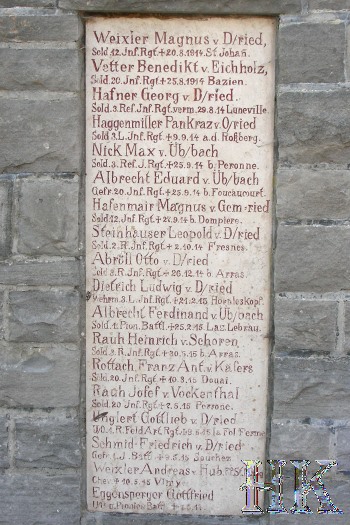 Weixler Magnus v. D/ried,
Sold. 12. Jnf. Rgt. + 20.8.1914 St. Johan.
Vetter Benedikt v. Eichholz,
Sold. 20. Jnf. Rgt. + 25.8.1914 Bazien.
Hafner Georg v. D/ried.
Sold. 3. Ref. Jnf. Rgt. verm. 29.8.14 Luneville.
Haggenmiller Pankraz v. O/ried
Sold. 3. L. Jnf. Rgt. + 9.9.14 a.d. Roßberg.
Nick Max v. Üb/bach
Sold. 3. Ref. J. Rgt. + 25.9.14 b. Peronne.
Albrecht Eduard v. Üb/bach
Gefr. 20. Jnf. Rgt. + 25.9.14 b. Foucaucourt.
Hafenmair Magnus v. Gem-ried
Sold. 12. Jnf. Rgt. + 27.9.14 b. Dompiere.
Steinhauser Leopold v. D/ried
Sold. 2. R. Jnf. Rgt. + 2.10.14 Fresnes.
Abröll Otto v. D/ried
Sold. 3. R. Jnf. Rgt. + 26.12.14 b. Arras.
Dietrich Ludwig v. D/ried
3. L. Jnf. Rgt. + 21.2.15 Hörnleskopf.
Albrecht Ferdinand v. Üb/bach
Sold. 1. Pion. Batl. + 25.2.15 Lan. Lebrau.
Rauh Heinrich v. Schoren
Sold. 3. R. Jnf. Rgt. + 30.5.15 b. Arras.
Rottach Franz Ant. v. Käfers
Sold. 20. Jnf. Rgt. + 10.3.15 Douai.
Rauh Josef v. Vockenthal
Sold. 20 Jnf. Rgt. + 7.5.15 Peronne.
Englert Gottlieb v. D/ried
R. Feld. Art. Rgt. La Fol Ferme
Schmid Friedrich v. D/ried
Gefr. 1. J. Batl. + 9.5.15 Souchez
Weixler Andreas v. Hub
+ 10.5.15 Vimy
Eggensperger Gottfried
HK